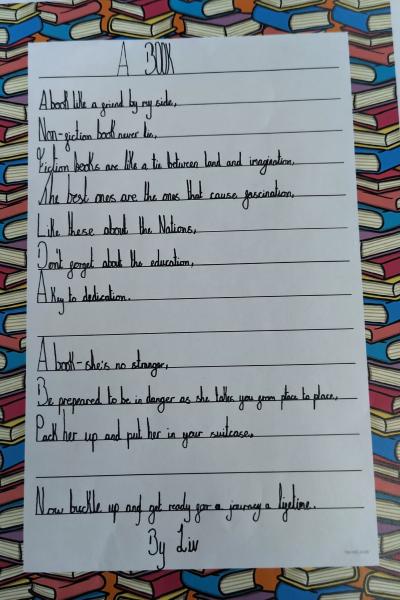 A BOOK
A book like a friend by my side,
Non-fiction book never lin,
Fiction books are like a tie between land and imagination,
The best ones are the ones that cause fascination,
Like these about the Nations,
Don't forget about the education,
A Key to dedication.
A book-she's no stranger,
Be prepeared to be in danger as she takes you from place to place,
Pack her up and put her in your suitcase.
Now buckle up and get ready for a journey a lifetime.
By Liv